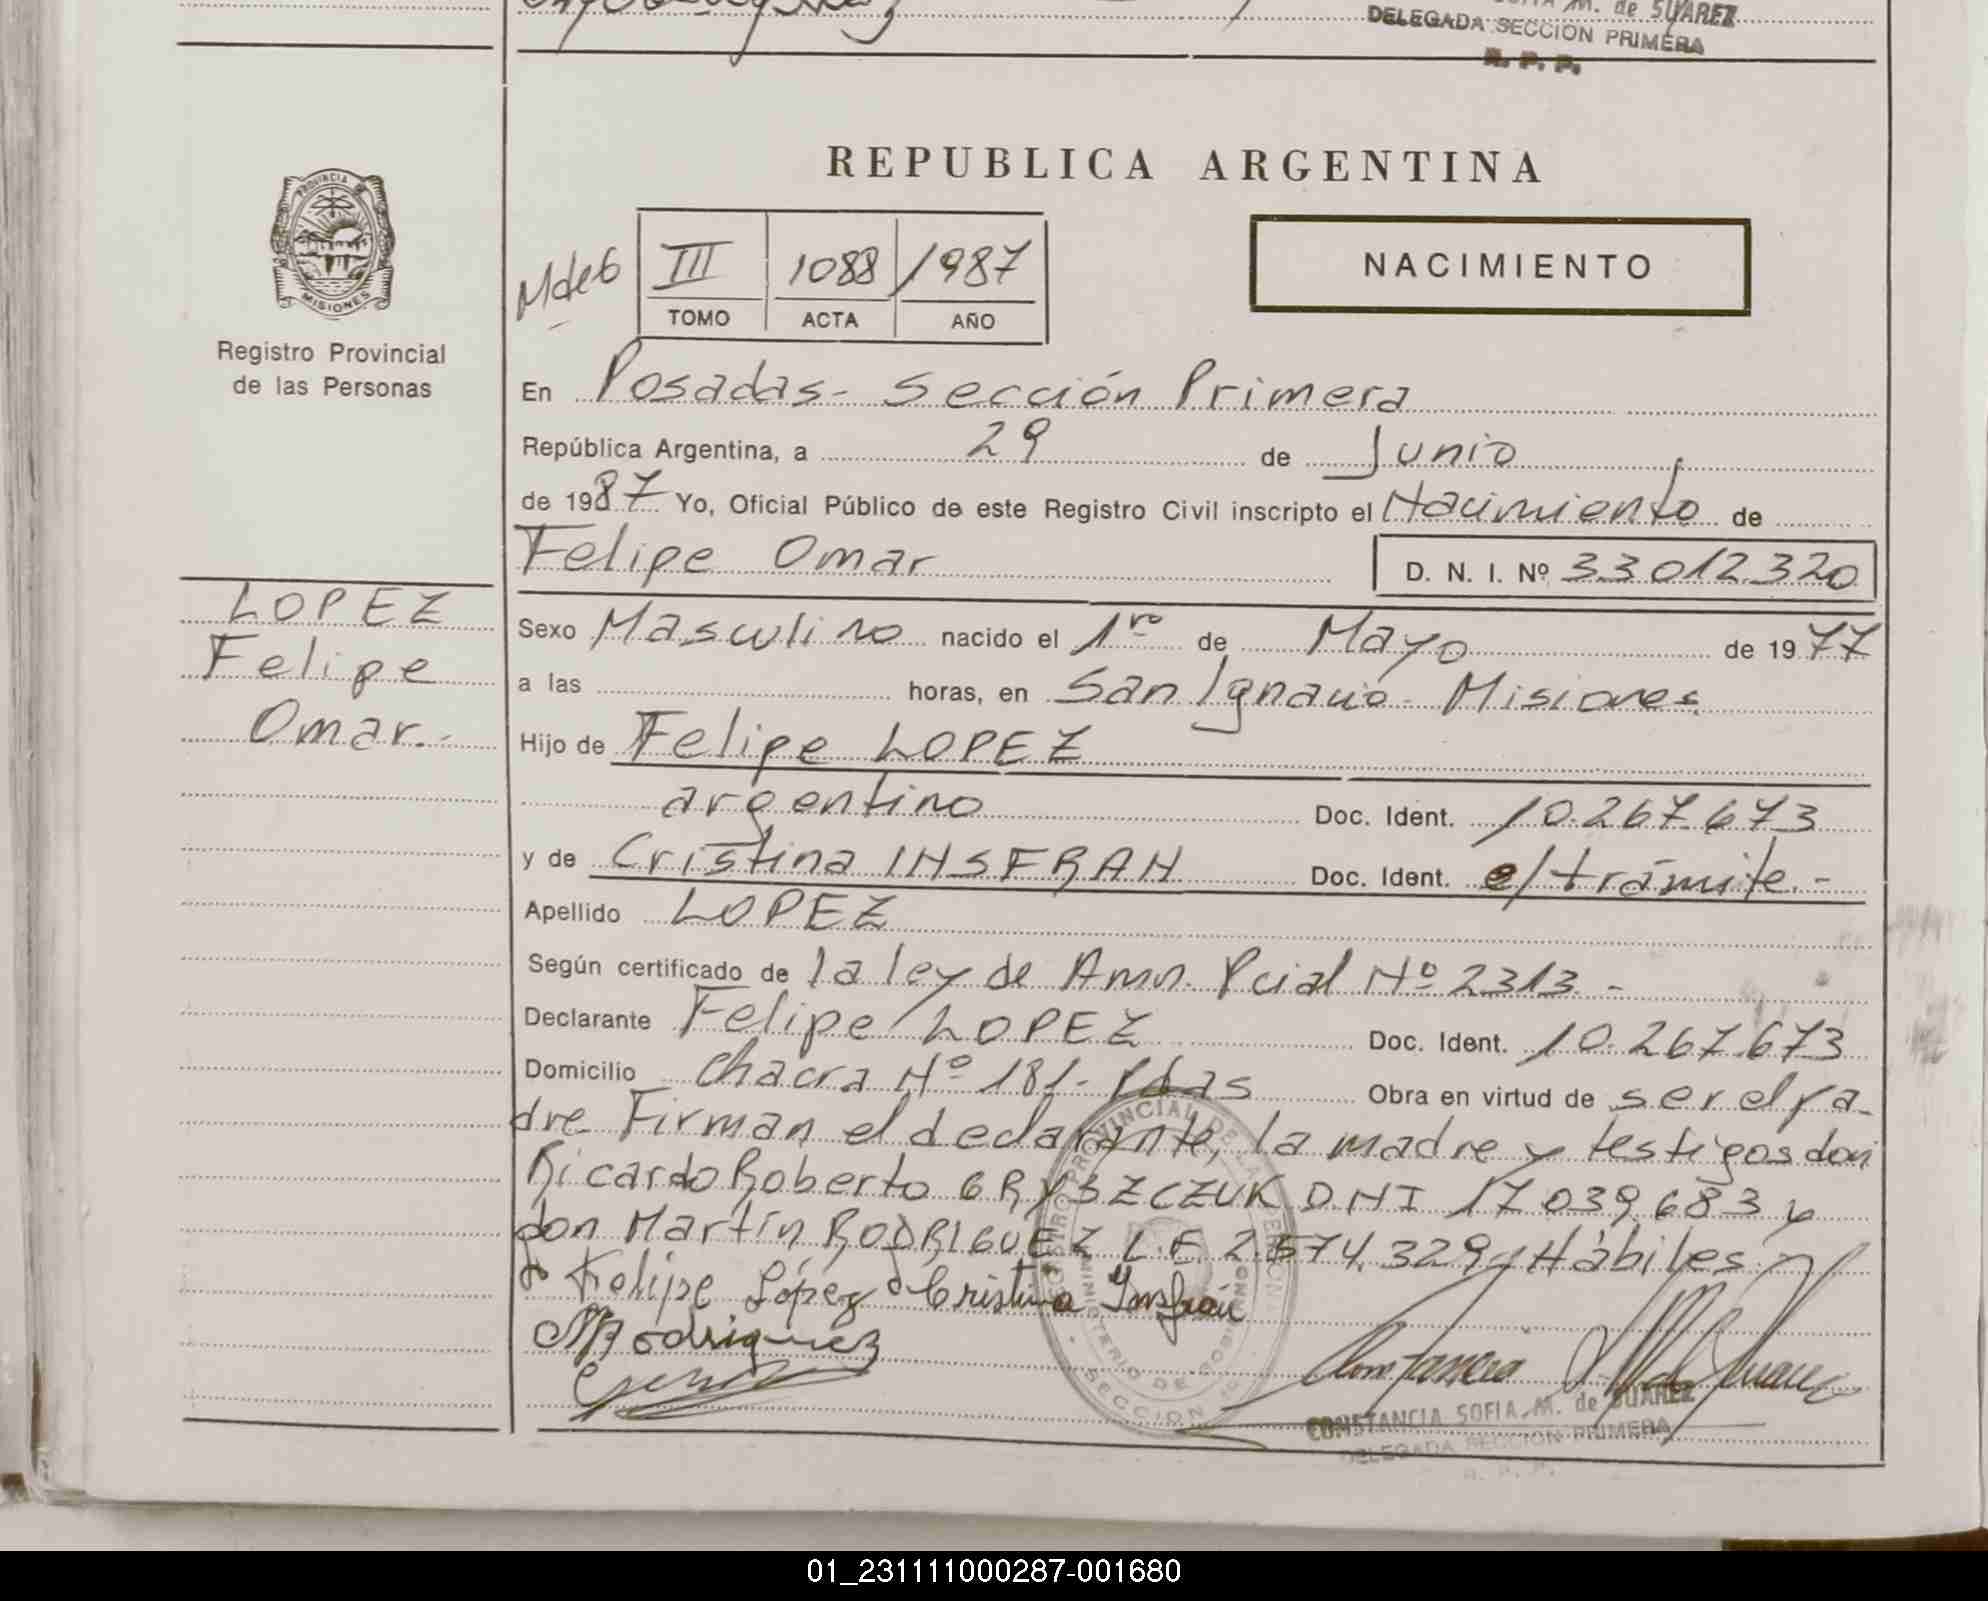 M. de SUAREZ
DELEGADA SECCION PRIMERA
R. P. P.
REPUBLICA ARGENTINA
PROVINCIA
MISIONES
Registro Provincial
de las Personas
III 1088 1987
TOMO ACTA AÑO
NACIMIENTO
En Posadas- Sección Primera
República Argentina, a 29 de Junio
de 1987 Yo, Oficial Público de este Registro Civil inscripto el Nacimiento de
Felipe Omar D. N. I. Nº 33012320
LOPEZ
Felipe
Omar.-
Sexo Masculino nacido el 1ro de Mayo de 1977
a las horas, en San Ignacio- Misiones
Hijo de Felipe LOPEZ
argentino Doc. Ident. 10.267.673
y de Cristina INSFRAN Doc. Ident. e/trámite.-
Apellido LOPEZ
Según certificado de la ley de Amn. Pcial Nº 2313.-
Declarante Felipe LOPEZ Doc. Ident. 10.267.673
Domicilio Chacra Nº 181- Pdas Obra en virtud de ser el pa-
dre Firman el declarante, la madre y testigos don
Ricardo Roberto GRYSZCZUK D.N.I 17.039.683 y
don Martín RODRIGUEZ L.E. 2.574.329 y Hábiles
Felipe López Cristina Insfrán
Rodriguez
CONSTANCIA SOFIA M. de SUAREZ
DELEGADA SECCION PRIMERA
R. P. P.
01_231111000287-001680